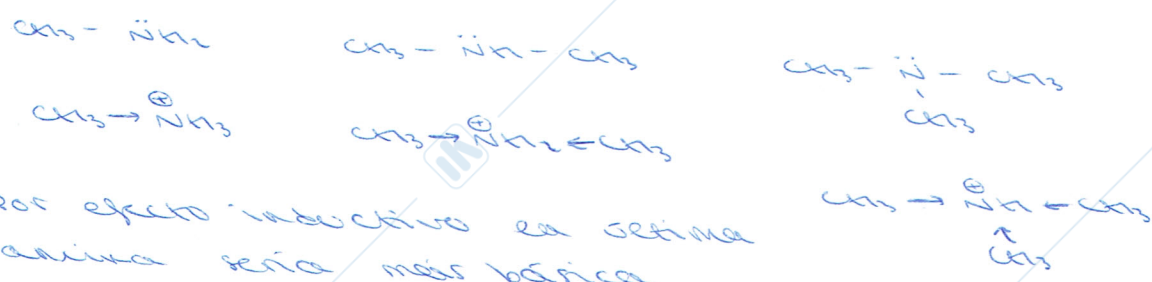 CH3 - N̈H2
CH3 - N̈H - CH3
CH3 - N̈ - CH3
CH3
CH3 → ⊕NH3
CH3 → ⊕NH2 ← CH3
CH3 → ⊕NH ← CH3
↑
CH3
por efecto inductivo la última
amina sería más básica